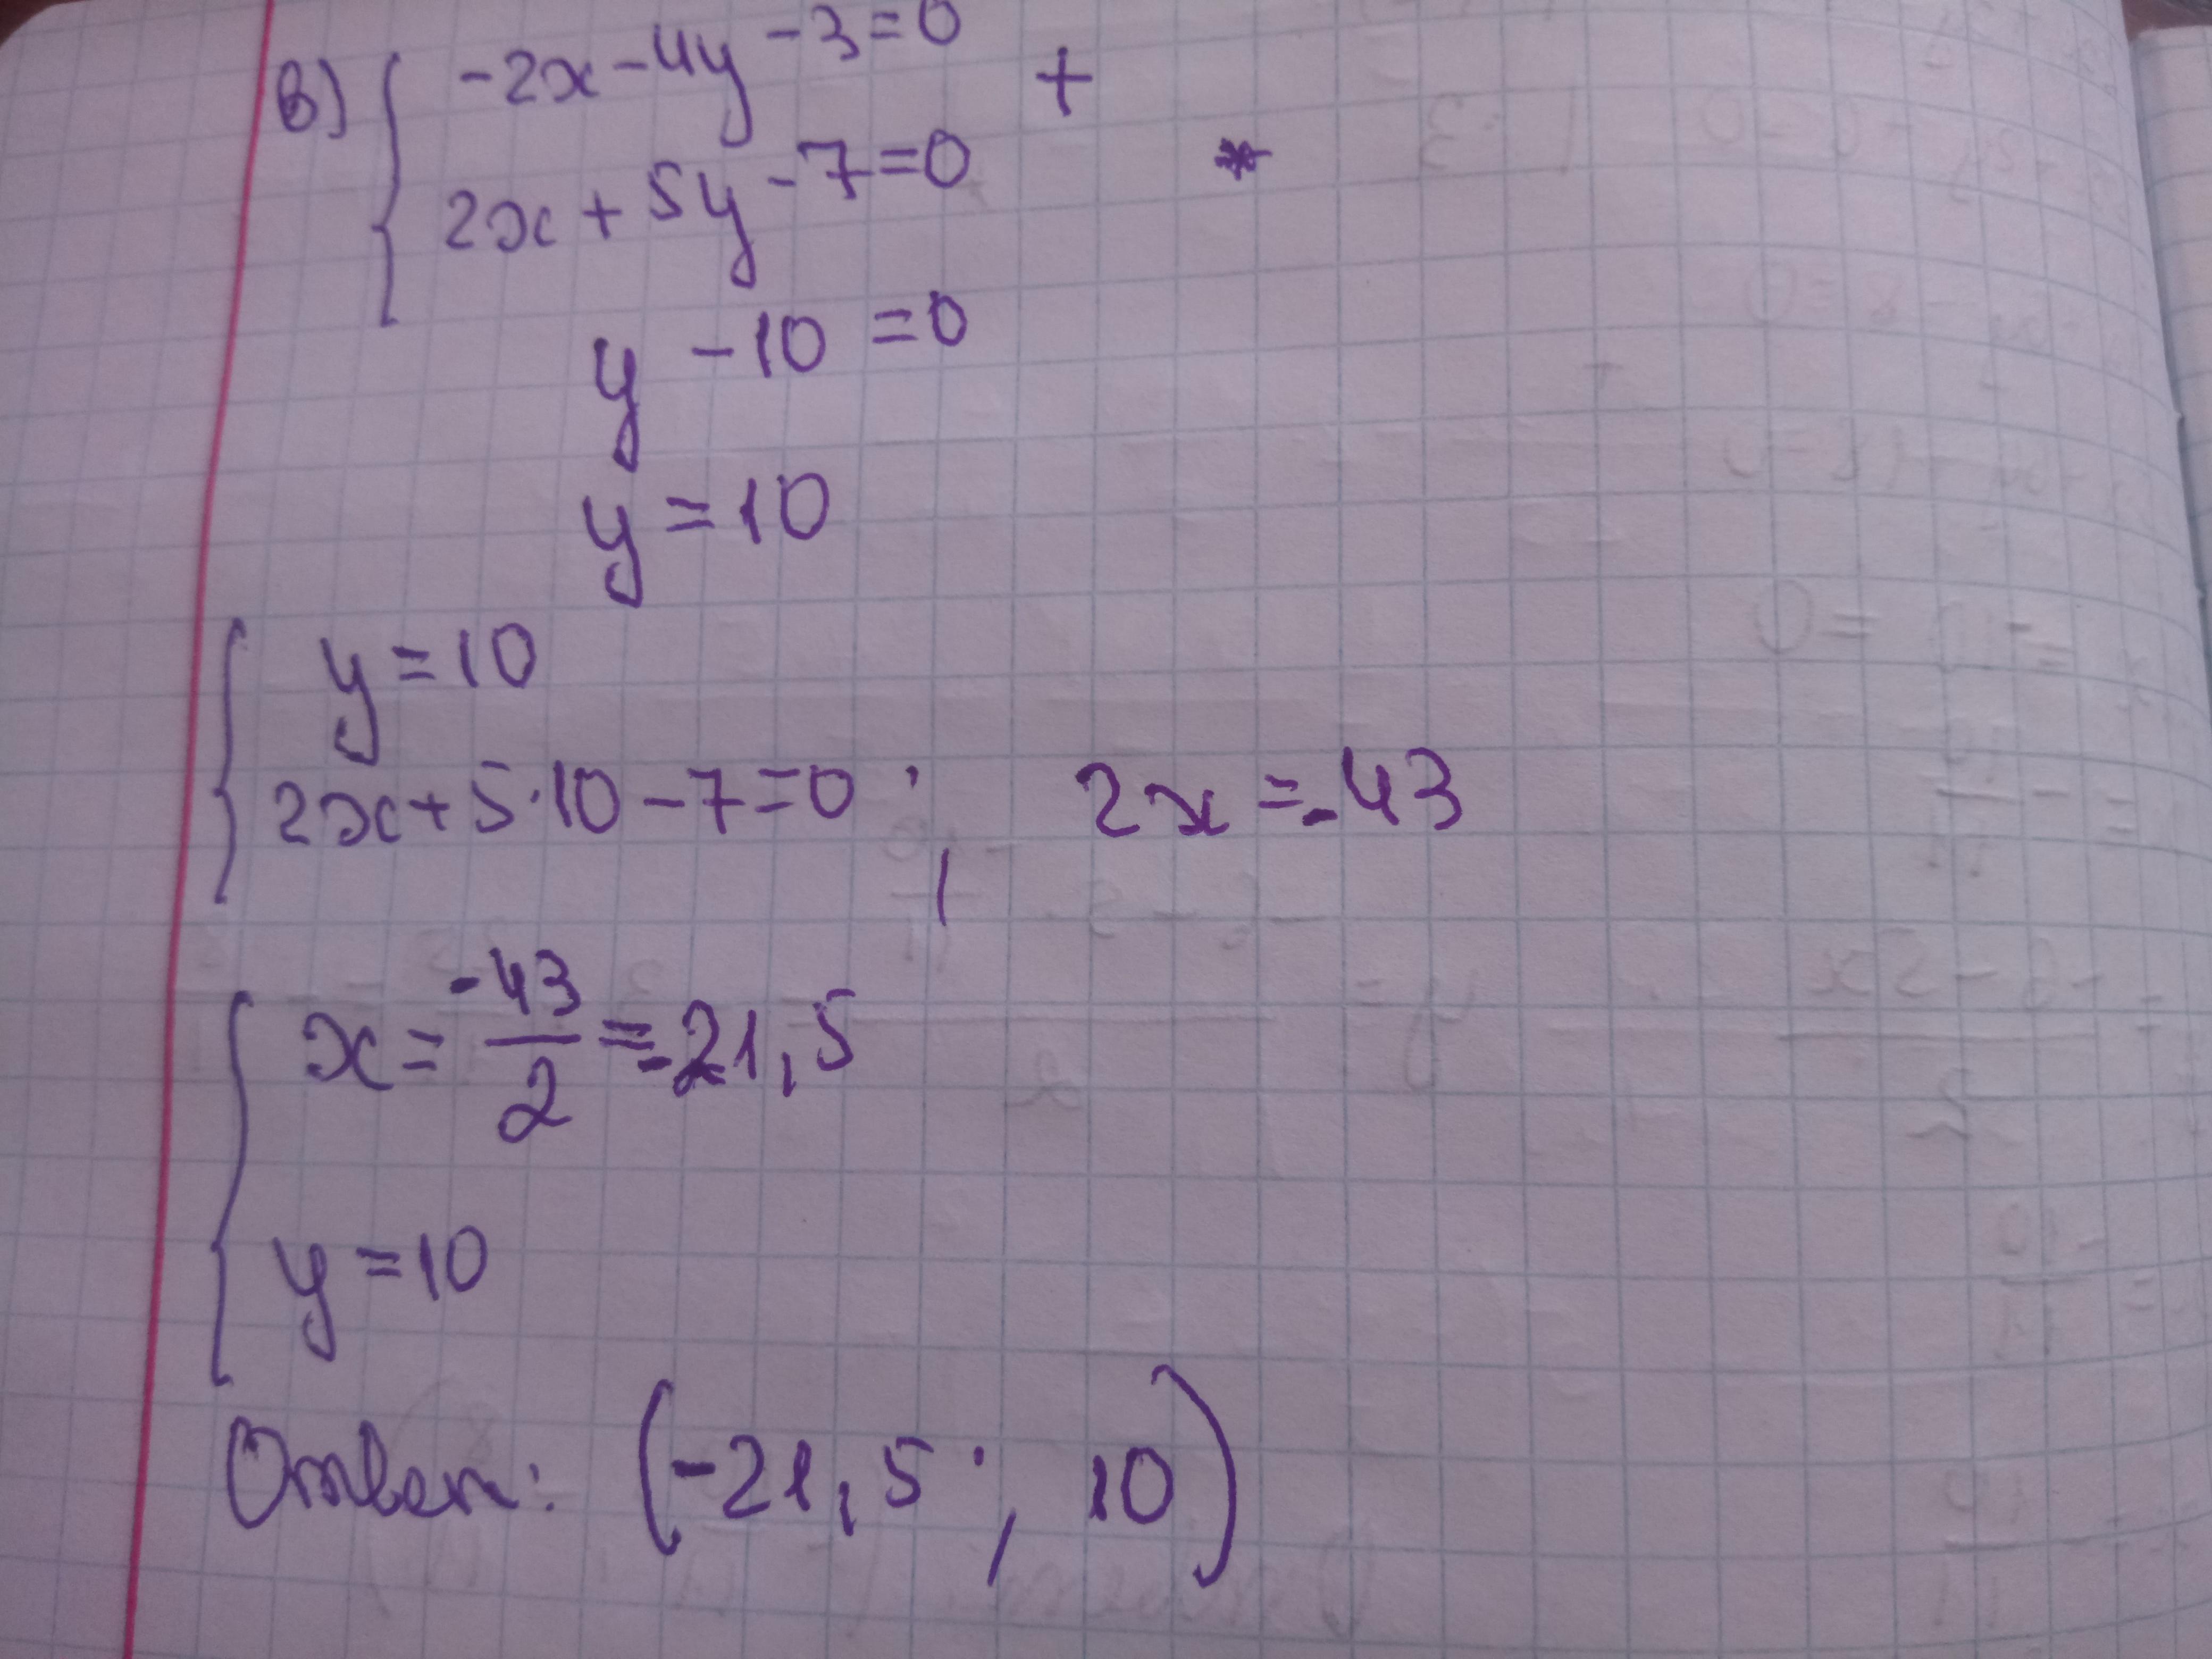 в) { -2x - 4y - 3 = 0 +
2x + 5y - 7 = 0 *
y - 10 = 0
y = 10
{ y = 10
2x + 5·10 - 7 = 0 ; 2x = -43
{ x = -43/2 = -21,5
y = 10
Ответ: (-21,5 ; 10)